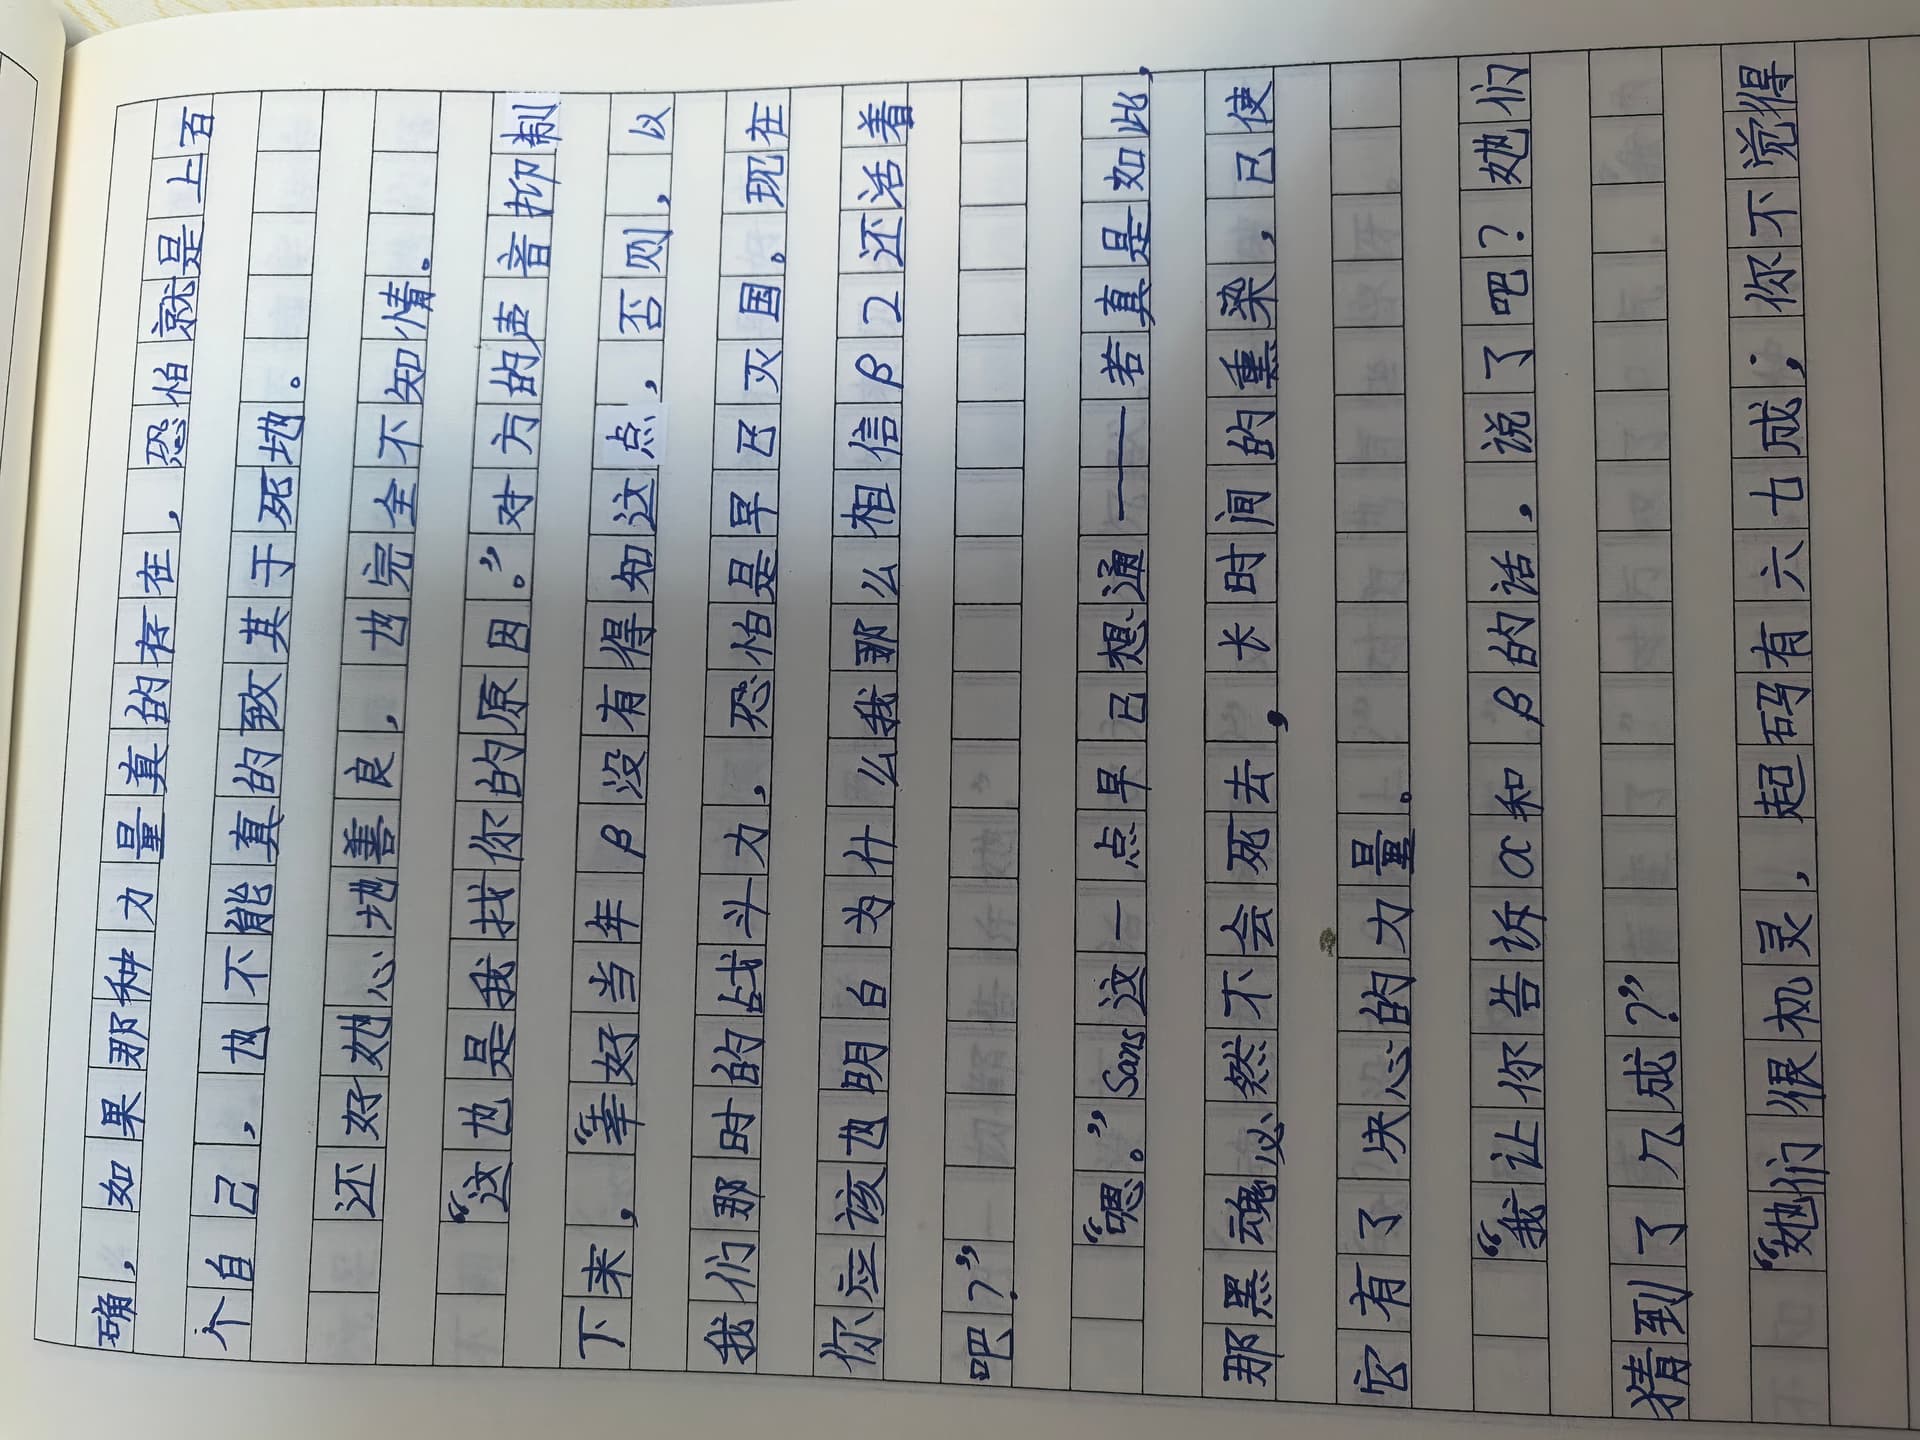 确，如果那种力量真的存在，恐怕就是上百
个自己，也不能真的致其于死地。
还好她心地善良，也完全不知情。
“这也是我找你的原因。”对方的声音抑制
下来，“幸好当年β没有得知这点，否则，以
我们那时的战斗力，恐怕是早已灭国。现在
你应该也明白为什么我那么相信β2还活着
吧？”
“嗯。”Sans这一点早已想通——若真是如此，
那黑魂必然不会死去，长时间的熏染，已使
它有了决心的力量。
“我让你告诉α和β的话，说了吧？她们
猜到了几成？”
“她们很机灵，超码有六七成；你不觉得